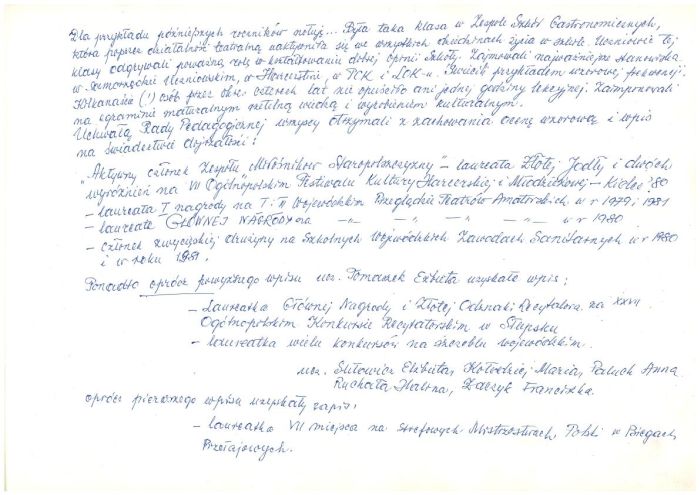 Dla przykładu późniejszych roczników notuję... Była taka klasa w Zespole Szkół Gastronomicznych,
która poprzez działalność teatralną uaktywniła się we wszystkich dziedzinach życia w szkole. Uczniowie tej
klasy odgrywali poważną rolę w kształtowaniu dobrej opinii Szkoły. Zajmowali najważniejsze stanowiska
w Samorządzie Uczniowskim, w Harcerstwie, w PCK i LOK-u. Świecili przykładem wzorowej frekwencji.
Kilkanaście (!) osób przez okres czterech lat nie opuściło ani jednej godziny lekcyjnej. Zaimponowali
na egzaminie maturalnym rzetelną wiedzą i wyrobieniem kulturalnym.
Uchwałą Rady Pedagogicznej wszyscy otrzymali z zachowania ocenę wzorową i wpis
na świadectwie dojrzałości:
"Aktywny członek Zespołu Miłośników Staropolszczyzny" – laureata Złotej Jodły i dwóch
wyróżnień na VII Ogólnopolskim Festiwalu Kultury Harcerskiej i Młodzieżowej – Kielce '80
– laureata I nagrody na I i II Wojewódzkim Przeglądzie Teatrów Amatorskich w r 1979 i 1981
– laureata GŁÓWNEJ NAGRODY na –"– –"– –"– w r 1980
– członek zwycięskiej drużyny na Szkolnych Wojewódzkich Zawodach Sanitarnych w r 1980
i w roku 1981.
Ponadto oprócz powyższego wpisu ucz. Pomasek Elżbieta uzyskała wpis:
– Laureatka Głównej Nagrody i Złotej Odznaki Recytatora na XXVI
Ogólnopolskim Konkursie Recytatorskim w Słupsku
– laureatka wielu konkursów na szczeblu wojewódzkim.
ucz. Elżbieta, Kołodziej Maria, Paluch Anna
Ruchała Halina, Zaczyk Franciszka
oprócz pierwszego wpisu uzyskały zapis:
– laureatka VII miejsca na Strefowych Mistrzostwach Polski w Biegach
Przełajowych.